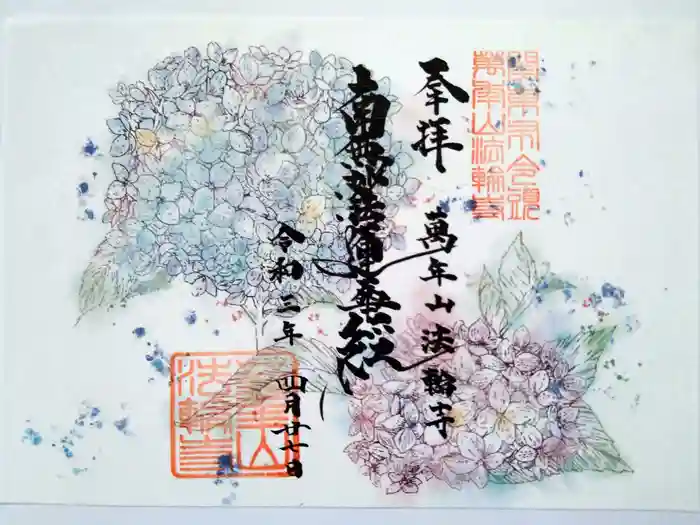 関東宗令頭
萬年山法輪寺
奉拝
萬年山 法輪寺
南無妙法蓮華経
令和三年 四月廿七日
萬年山
法輪寺